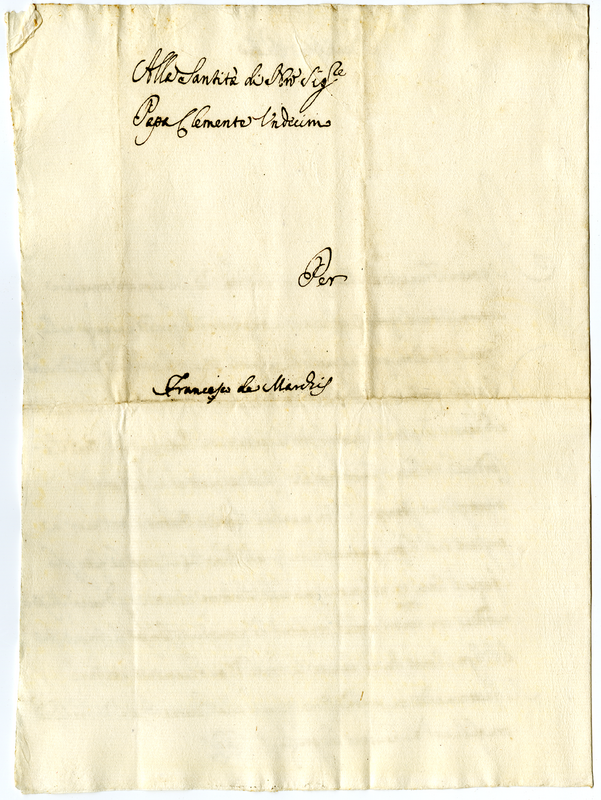 Alla Santità di Nro Sigre
Papa Clemente Undecimo
Per
Francesco de Marchis